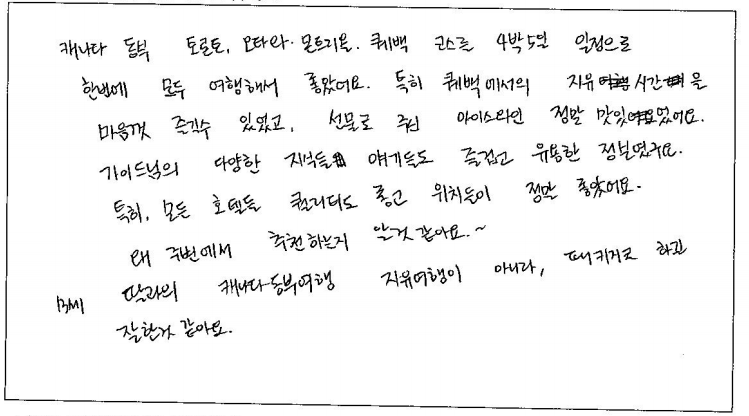 캐나다 동부 토론토, 오타와·몬트리올·퀘벡 코스를 4박5일 일정으로
한번에 모두 여행해서 좋았어요. 특히 퀘벡에서의 자유 시간을
마음껏 즐길수 있었고, 선물로 주신 아이스와인 정말 맛있었어요.
가이드님의 다양한 지식들 얘기들도 즐겁고 유용한 정보였구요.
특히, 모든 호텔들 퀄리티도 좋고 위치들이 정말 좋았어요.
왜 주변에서 추천하는지 알것 같아요.~
13세 딸과의 캐나다 동부여행 자유여행이 아니라, 패키지로 하길
잘한것 같아요.